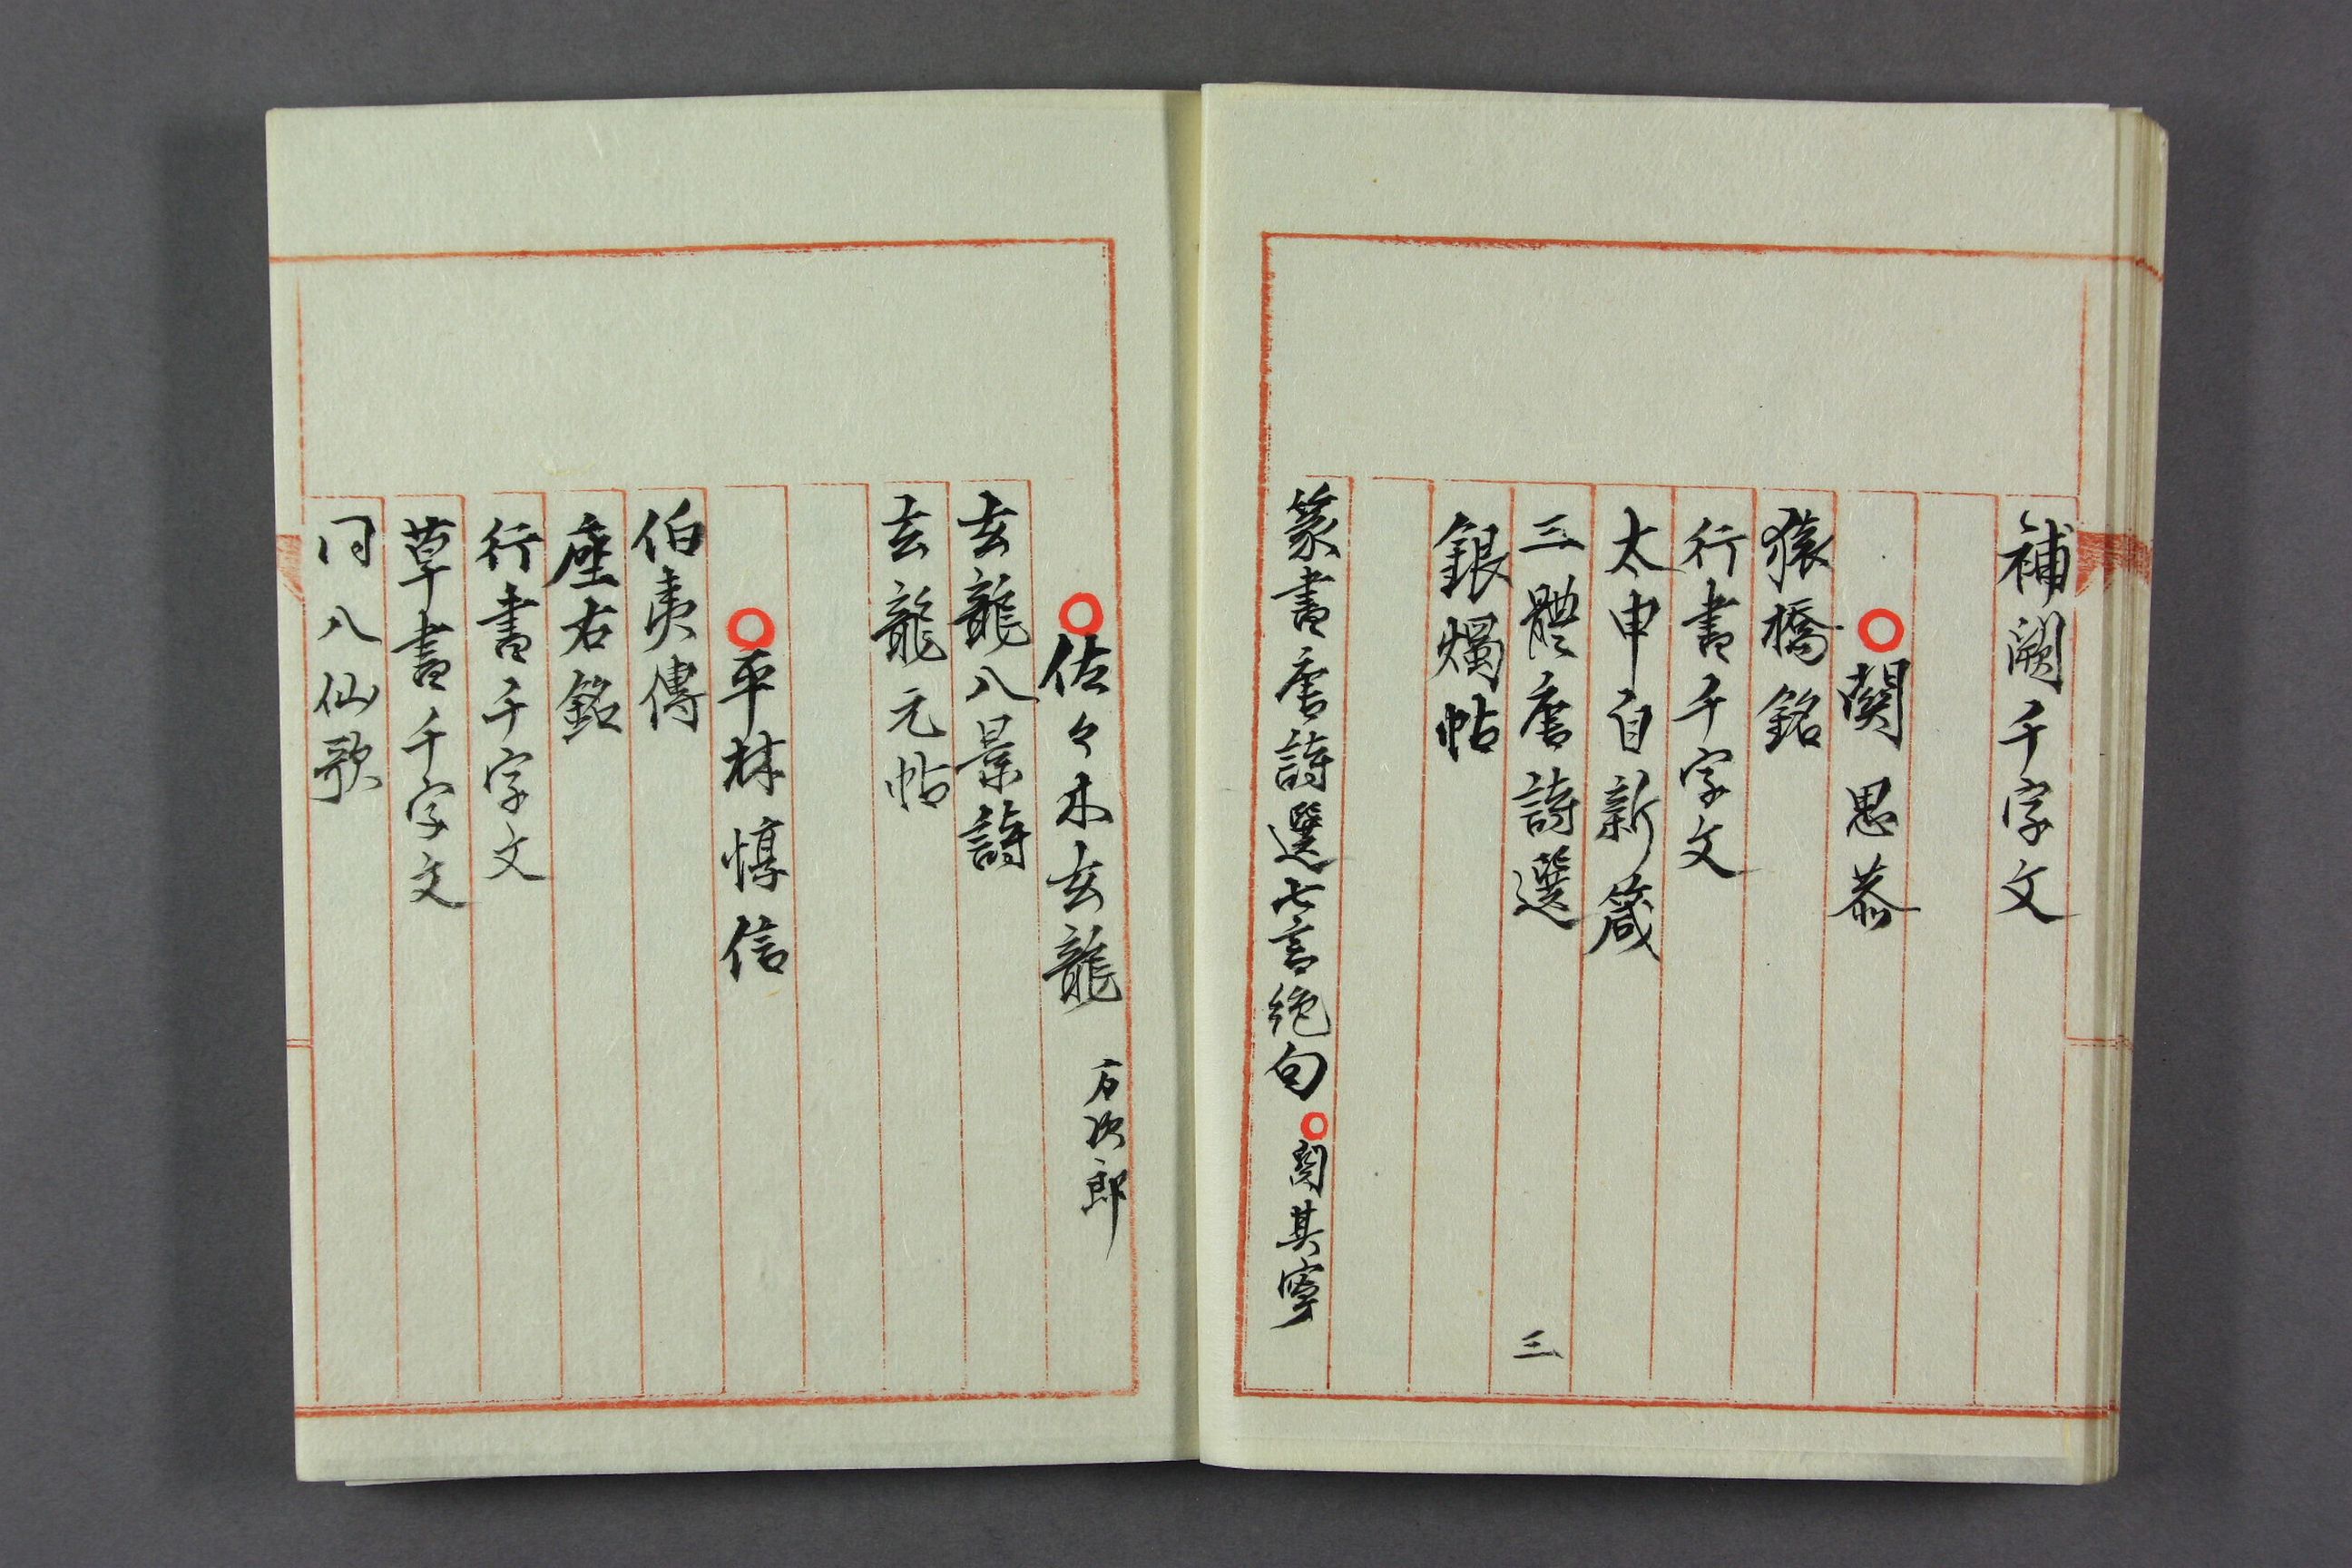 補闕千字文
○關思恭
猿橋銘
行書千字文
太申自新箴
三體唐詩選
三
銀燭帖
篆書唐詩選七言絶句 ○關其寧
○佐々木玄龍 万次郎
玄龍八景詩
玄龍元帖
○平林惇信
伯夷傳
座右銘
行書千字文
草書千字文
同八仙歌